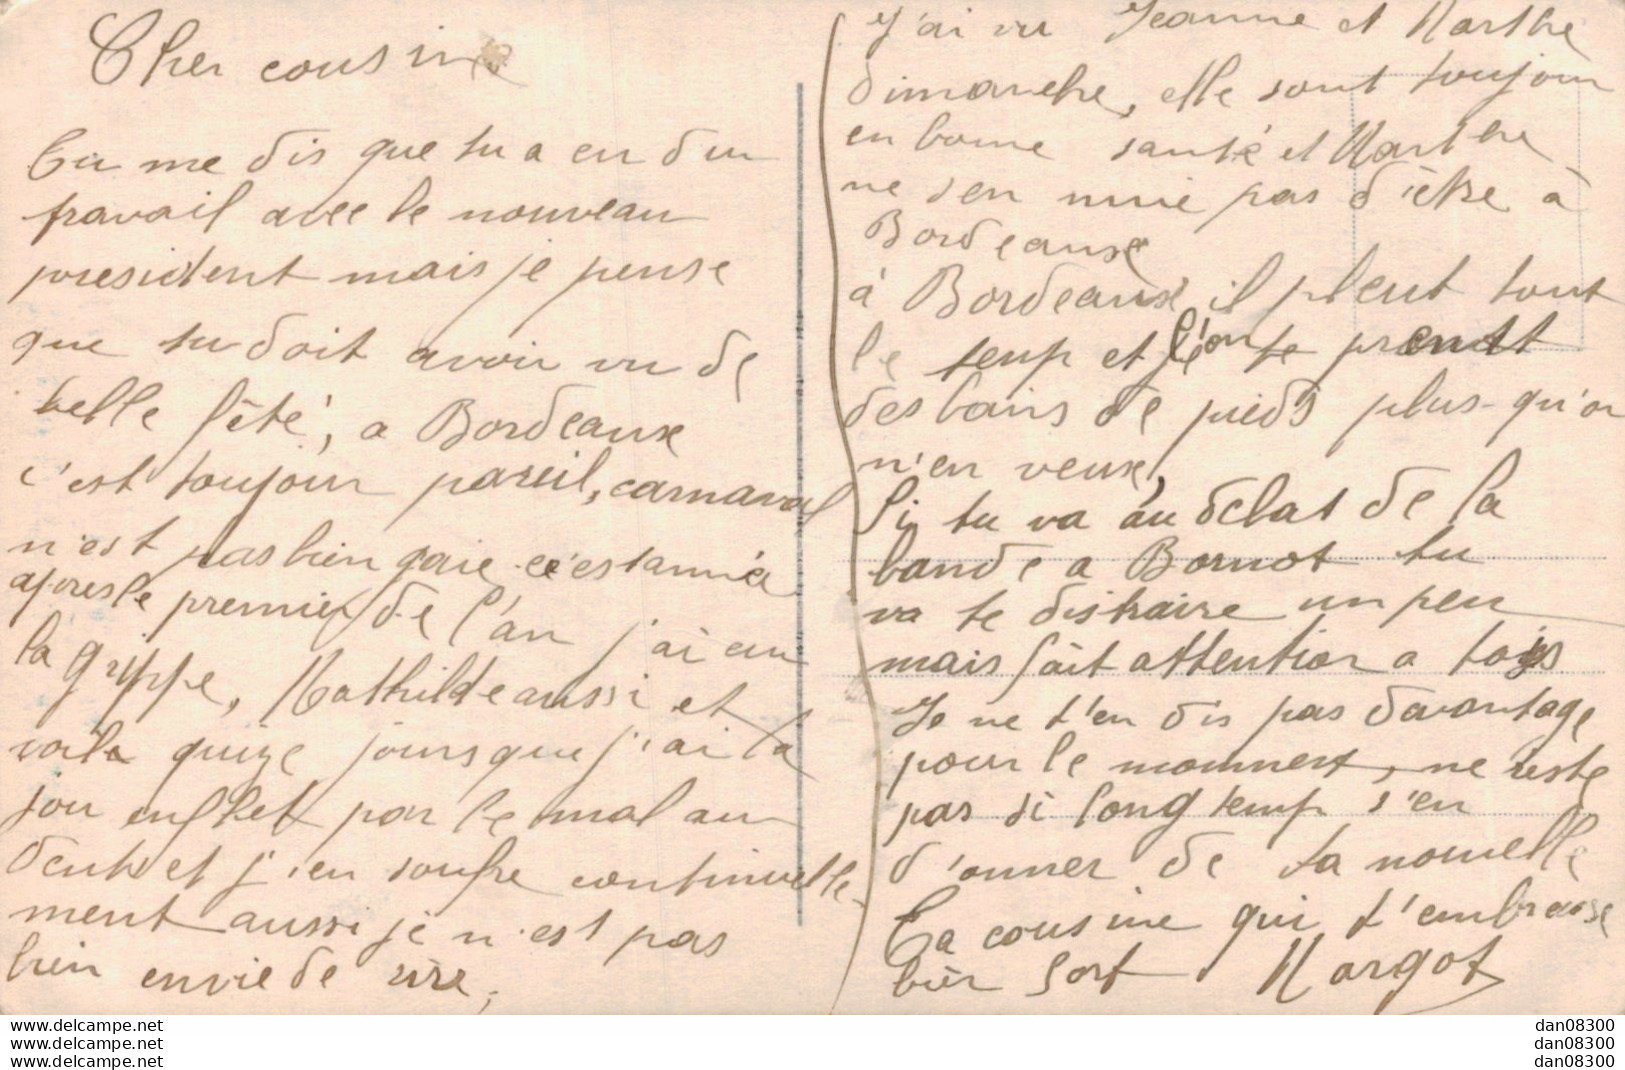 Cher cousin
tu me dis que tu a eu du
travail avec le nouveau
president mais je pense
que tu doit avoir vu de
belle fêté, a Bordeaux
c'est toujour pareil, carnaval
n'est pas bien gaie ce'est année
apres le premier de l'an j'ai eu
la grippe, Mathilde aussi et
voila quize jours que j'ai la
jou enflet par le mal au
dents et j'en soufre continuelle-
ment aussi je n'est pas
bien envie de rire,
J'ai vu Jeanne et Marthe
dimanche, elle sont toujour
en bonne santé et Marthe
ne s'en nuie pas d'être à
Bordeaux
à Bordeaux il pleut tout
le temp et l'on te prent
des bains de pieds plus qu'on
n'en veux,
Si tu va au delat de la
bande a Bornot tu
va te distraire un peu
mais fait attention a tois
Je ne t'en dis pas davantage
pour le momment, ne reste
pas si longtemp s'en
d'onner de ta nouvelle
Ta cousine qui t'embrasse
bien fort Margot
www.delcampe.net
www.delcampe.net
www.delcampe.net
dan08300
dan08300
dan08300